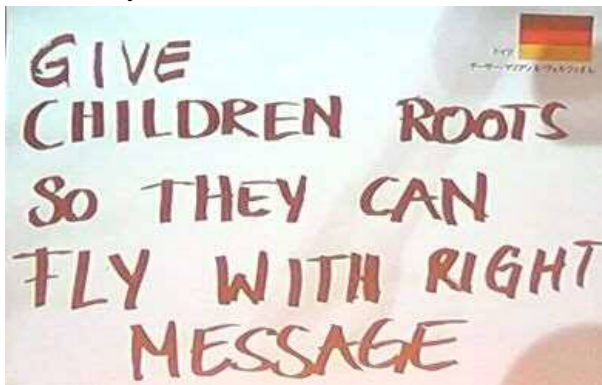 ドイツ
GIVE
CHILDREN ROOTS
SO THEY CAN
FLY WITH RIGHT
MESSAGE